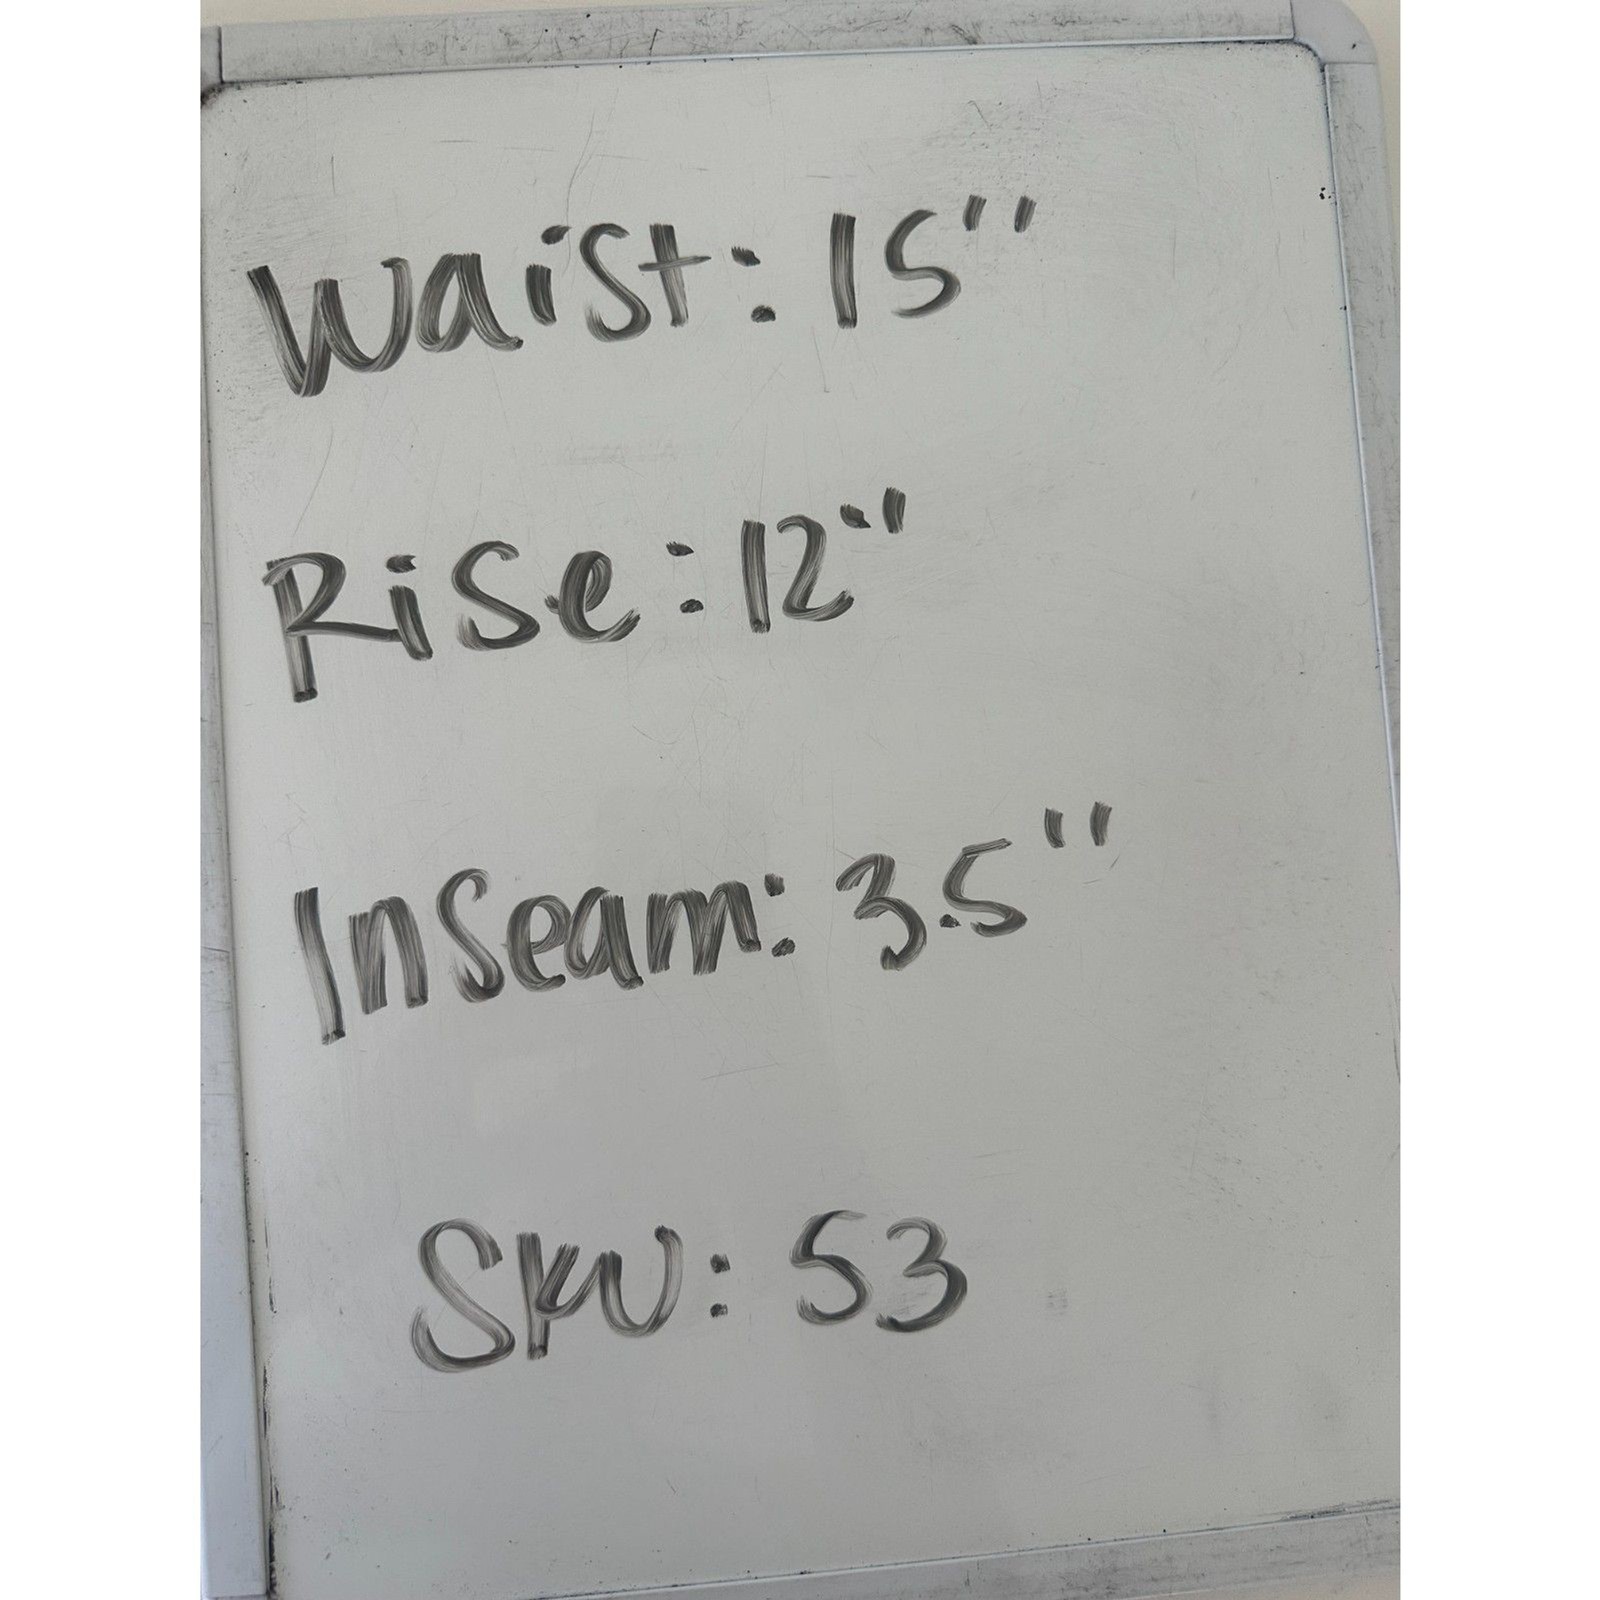 Waist: 15''
Rise: 12''
Inseam: 3.5''
SKU: 53